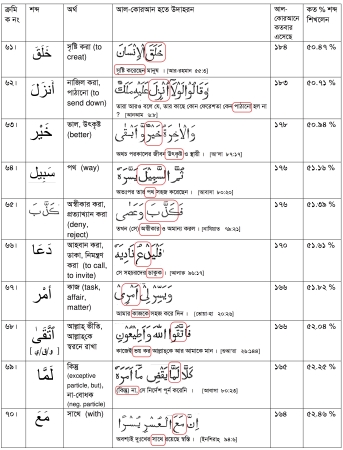 ক্রমিক নং শব্দ অর্থ আল-কোরআন হতে উদাহরন আল-কোরআনে কতবার এসেছে কত % শব্দ শিখলেন
৬১। خَلَقَ সৃষ্টি করা (to creat) خَلَقَ الْإِنْسَانَ ১৮৪ ৫০.৪৯ %
সৃষ্টি করেছেন মানুষ । [আর-রহমান ৫৫:৩]
৬২। أَنْزَلَ নাজিল করা, পাঠানো (to send down) وَقَالُوا لَوْلَا أُنْزِلَ عَلَيْهِ مَلَكٌ ১৮৩ ৫০.৭১ %
তারা আরও বলে যে, তার কাছে কোন ফেরেশতা কেন পাঠানো হল না ? [আনআম ৬:৮]
৬৩। خَيْر ভাল, উৎকৃষ্ট (better) وَالْآخِرَةُ خَيْرٌ وَأَبْقَى ১৭৮ ৫০.৯৪ %
অথচ পরকালের জীবন উৎকৃষ্ট ও স্থায়ী । [আ'লা ৮৭:১৭]
৬৪। سَبِيل পথ (way) ثُمَّ السَّبِيلَ يَسَّرَهُ ১৭৬ ৫১.১৬ %
অতঃপর তার পথ সহজ করেছেন । [আবাসা ৮০:২০]
৬৫। كَذَّبَ অস্বীকার করা, প্রত্যাখ্যান করা (deny, reject) فَكَذَّبَ وَعَصَى ১৭৬ ৫১.৩৯ %
তখন (সে) অস্বীকার ও অমান্য করল । [নাযিয়াত ৭৯:২১]
৬৬। دَعَا আহবান করা, ডাকা, নিমন্ত্রণ করা (to call, to invite) فَلْيَدْعُ نَادِيَهُ ১৭০ ৫১.৬১ %
সে সহচরদের ডাকুক । [আলাক ৯৬:১৭]
৬৭। أَمْر কাজ (task, affair, matter) وَيَسِّرْ لِي أَمْرِي ১৬৬ ৫১.৮২ %
আমার কাজকে সহজ করে দিন । [ত্বোয়া-হা ২০:২৬]
৬৮। أَتَّقَى আল্লাহ্ ভীতি, আল্লাহকে স্মরনে রাখা فَاتَّقُوا اللَّهَ وَأَطِيعُونِ ১৬৬ ৫২.০৪ %
কাজেই ভয় কর আল্লাহকে আর আমাকে মান । [শুআ'রা ২৬:১৪৪]
৬৯। لَمَّا কিন্তু (exceptive particle, but), না-বোধক (neg. particle) كَلَّا لَمَّا يَقْضِ مَا أَمَرَهُ ১৬৫ ৫২.২৫ %
(কিন্তু) না, সে নির্দেশ পূর্ন করেনি । [আবাসা ৮০:২৩]
৭০। مَعَ সাথে (with) إِنَّ مَعَ الْعُسْرِ يُسْرًا ১৬৪ ৫২.৪৬ %
অবশ্যই দুঃখের সাথে রয়েছে স্বস্তি । [ইনশিরাহ ৯৪:৬]